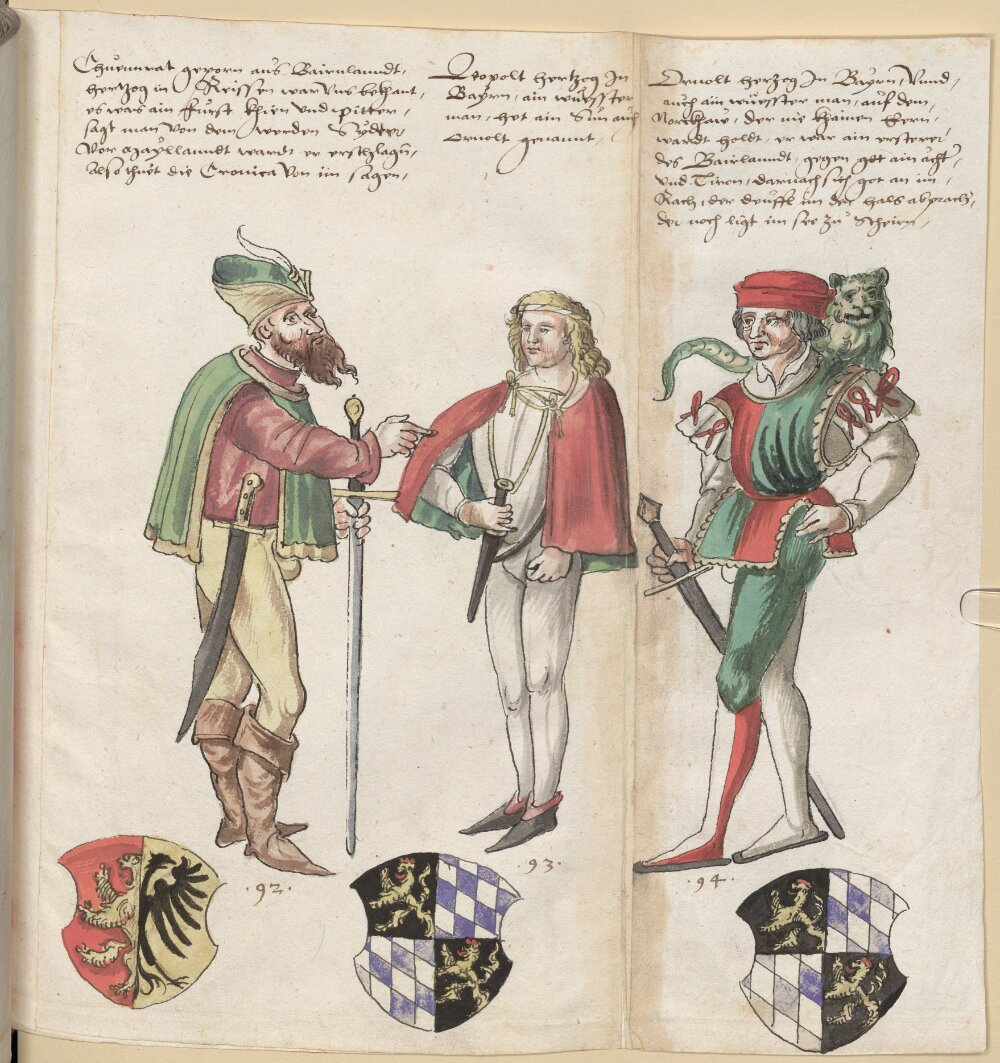 Chuennrat geporn aus Bairnlanndt,
hertzog in Reissen war Uns bekhant,
es was ain furst khien Und pitter,
sagt man Von dem werden Ritter
Vor Mayllanndt wardt er erschlagn,
Also thuet die Cronica Von im sagen,
Leopolt hertzog In
Bayrn, ain wuesster
man, het ain Sun auch
Ornolt genannt,
Ornolt herzog In Bayrn, Unnd,
auch ain wuesster man, auf dem,
Norckhaw, der nie khainem hern,
wardt holdt, er war ain ersterer
des Bairlanndt, gegen got ain acht,
Und Tiron, darnach sich got an im,
Rach, der deuffl im den hals abprach,
der noch ligt im see zu Scheirn,
92.
93.
94.